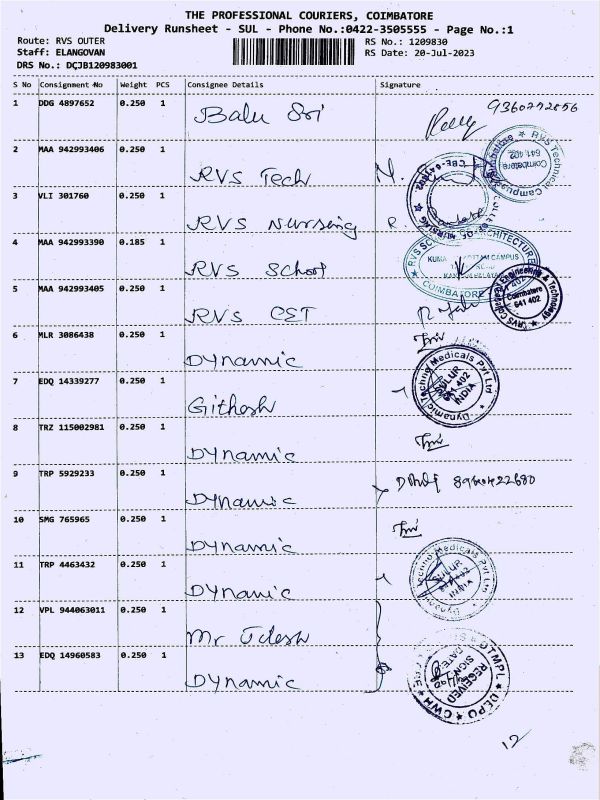 THE PROFESSIONAL COURIERS, COIMBATORE
Delivery Runsheet - SUL - Phone No.:0422-3505555 - Page No.:1
Route: RVS OUTER
RS No.: 1209830
Staff: ELANGOVAN
RS Date: 20-Jul-2023
DRS No.: DCJB120983001
S No Consignment No Weight PCS Consignee Details Signature
1 DDG 4897652 0.250 1 Balu Sri
2 MAA 942993406 0.250 1 RVS Tech
3 VLI 301760 0.250 1 RVS Nursing
4 MAA 942993390 0.185 1 RVS School
5 MAA 942993405 0.250 1 RVS CET
6 MLR 3086438 0.250 1 Dynamic
7 EDQ 14339277 0.250 1 Githesh
8 TRZ 115002981 0.250 1 Dynamic
9 TRP 5929233 0.250 1 Dynamic
10 SMG 765965 0.250 1 Dynamic
11 TRP 4463432 0.250 1 Dynamic
12 VPL 944063011 0.250 1 Mr
13 EDQ 14960583 0.250 1 Dynamic
RVS Technical Campus
Coimbatore
641 402
COIMBATORE
RVS College Engineering & Technology
Coimbatore
641 402
Dynamic Techno Medicals Pvt Ltd
SULUR
641 402
INDIA
Techno Medicals Pvt Ltd
SULUR
DTMPL DEPO CWH
RECEIVED
SIGN
DATE
12